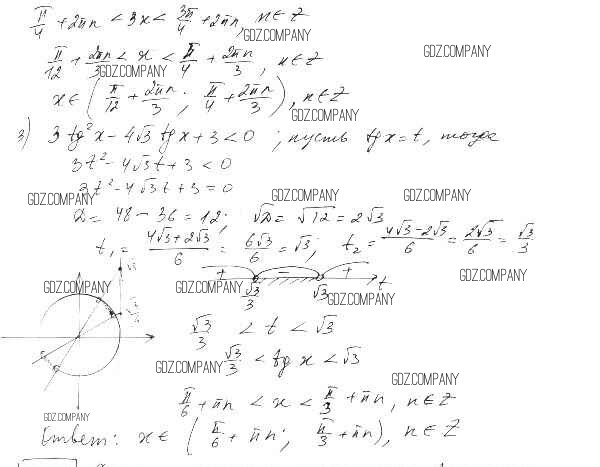 π/4 + 2πn < 3x < 3π/4 + 2πn, n ∈ Z
GDZ.COMPANY
π/12 + 2πn/3 < x < π/4 + 2πn/3, n ∈ Z
GDZ.COMPANY
GDZ.COMPANY
x ∈ (π/12 + 2πn/3; π/4 + 2πn/3), n ∈ Z
GDZ.COMPANY
3) 3 tg²x - 4√3 tgx + 3 < 0; пусть tgx = t, тогда
3t² - 4√3t + 3 < 0
3t² - 4√3t + 3 = 0
GDZ.COMPANY GDZ.COMPANY GDZ.COMPANY
D = 48 - 36 = 12; √D = √12 = 2√3
t₁ = (4√3 + 2√3)/6 = 6√3/6 = √3; t₂ = (4√3 - 2√3)/6 = 2√3/6 = √3/3
+ - + t
√3/3 √3
GDZ.COMPANY GDZ.COMPANY GDZ.COMPANY
GDZ.COMPANY
√3/3 < t < √3
√3/3 < tgx < √3
GDZ.COMPANY
GDZ.COMPANY
π/6 + πn < x < π/3 + πn, n ∈ Z
GDZ.COMPANY
Ответ: x ∈ (π/6 + πn; π/3 + πn), n ∈ Z